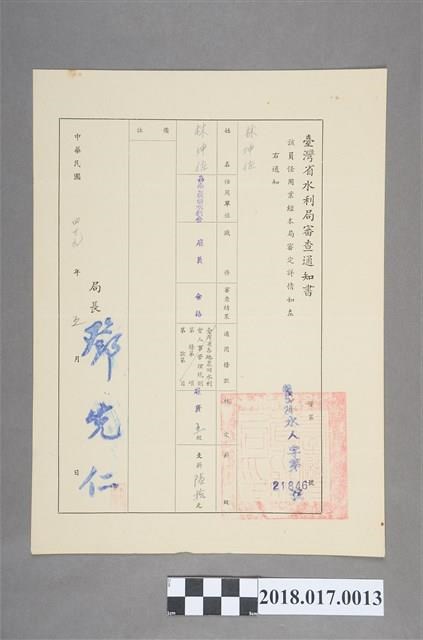 臺灣省水利局審查通知書
該員任用業經本局審定詳情如左
右通知
林坤
字第 號
水人字第 號
21846
姓名
任用單位
職務
審查結果
適用條款
核定薪級
林坤
雇員
合格
臺灣省各地農田水利
會人事管理規則
第 條第 項
第 款第 目
雇員
支薪 元
備註
中華民國 年 五 月 日
局長 鄧先仁
2018.017.0013